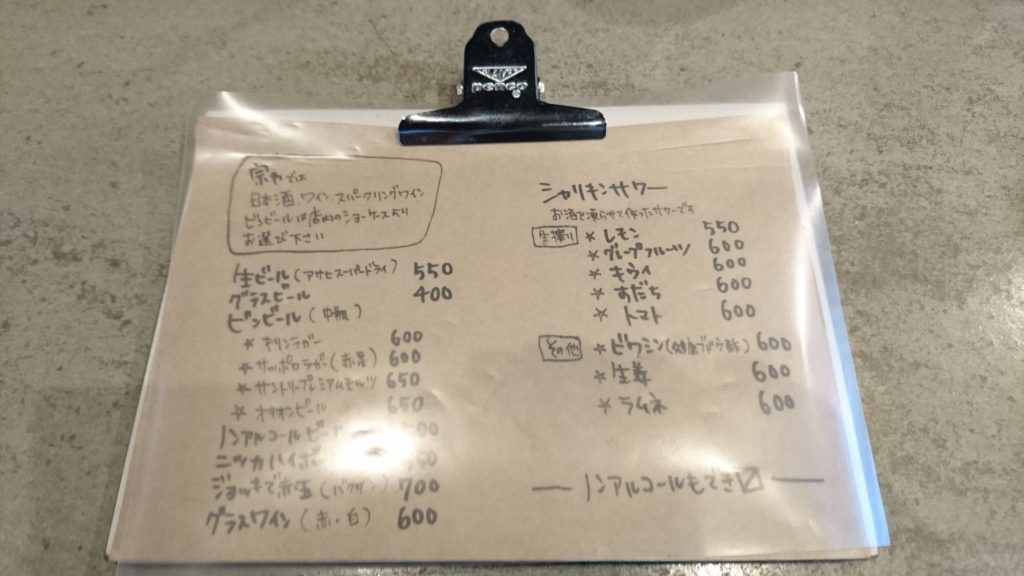 penco
では
日本酒、ワイン、スパークリングワイン
ビンビールは店内のショーケースより
お選び下さい
生ビール(アサヒスーパードライ) 550
グラスビール 400
ビンビール(中瓶)
☆ キリンラガー 600
☆ サッポロラガー(赤星) 600
☆ サントリープレミアムモルツ 650
☆ オリオンビール 650
ノンアルコールビ 00
ニッカハイボ 50
ジョッキで(バクダン) 700
グラスワイン(赤・白) 600
シャリキンサワー
お酒を凍らせて作ったサワーです
生搾り ☆ レモン 550
☆ グレープフルーツ 600
☆ キウイ 600
☆ すだち 600
☆ トマト 600
その他 ☆ ビタミン(健康ざくろ酢) 600
☆ 生姜 600
☆ ラムネ 600
― ノンアルコールもでき〼 ―